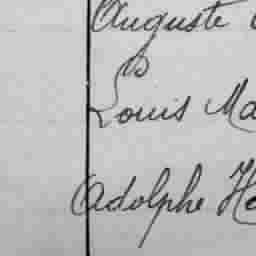 Auguste
Louis Ma
Adolphe He